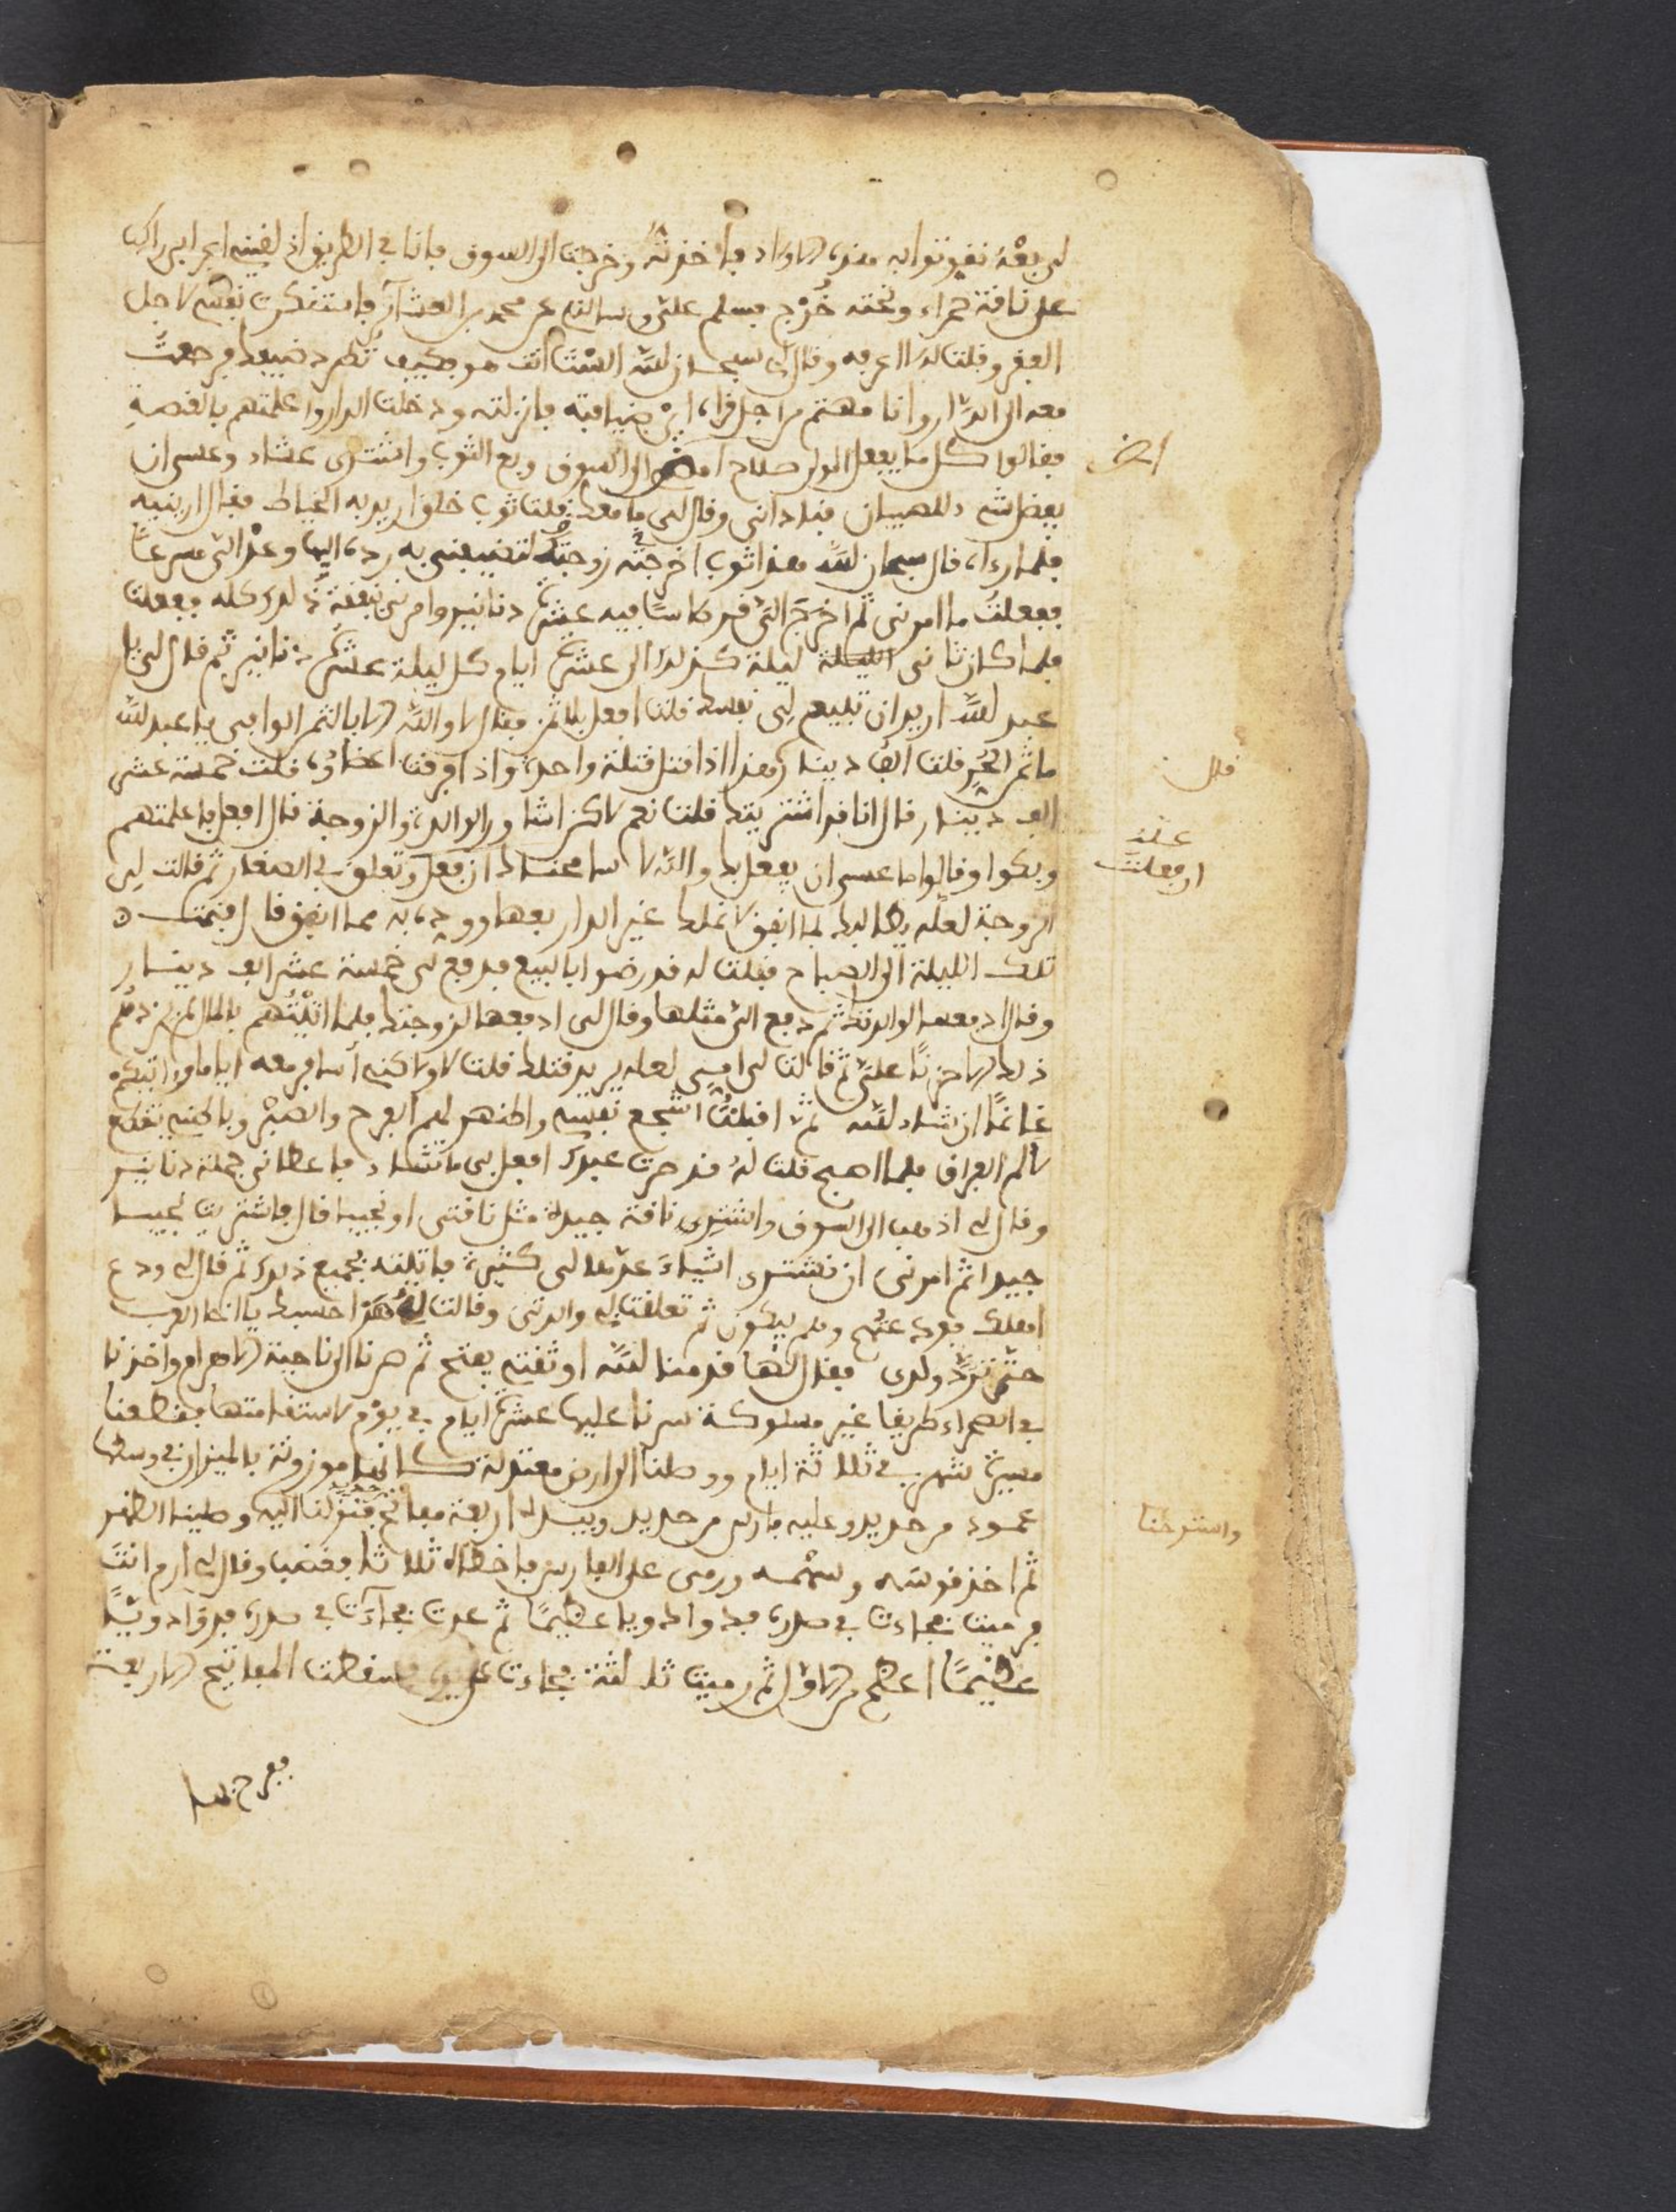 لي بعه نقوتوا به هذه الاولاد فاخذته وخرجت الى السوق فانا في الطريق اذ لقيني اعرابي راكب
على ناقة حمراء وتحته خرج فسلم علي وسالني عن محمد بن العشار فاستنكرت نفسي لاجل
الفقر وقلت له لا اعرفه وقال لي سبحان الله الست انت هو وكيف تطرد ضيفك فرجعت
معه الى الدار وانا مهتم من اجل قراه اي ضيافته فانزلته ودخلت الدار واعلمتهم بالقصة
فقالوا كل ما يفعل المولى صلاح امض الى السوق وبع الثوب واشترى عشاء وعسى ان
امض
يفضل شيء للصبيان فناداني وقال لي ما معك فقلت ثوب خلق اريد به الخياط فقال ارينيه
فلما رءاه قال سبحان الله هذا ثوب اخرجته زوجتك لتضيفني به رده اليها وعد الي مسرعا
ففعلت ما امرني ثم اخرج الي قرطاسا فيه عشرة دنانير وامرني بنفقة ذلك كله ففعلت
فلما كان ثاني الليلة ليلة كذلك الى عشرة ايام كل ليلة عشرة دنانير ثم قال لي يا
عبد الله اريد ان تبيع لي نفسك قلت افعل بلا ثمن فقال لا والله الا بالثمن الوافي يا عبد الله
ما ثمن الحر قلت الف دينار هذا اذا قتل قتلة واحدة واذا فرقت اعضاؤه قلت خمسة عشر
قال
الف دينار قال انا قد اشتريتك قلت نعم لاكن اشاور الوالدة والزوجة قال افعل فاعلمتهم
وبكوا وقالوا ما عسى ان يفعل بك والله لا سامحناك ان فعلت وتعلق بي الصغار ثم قالت لي
علة
ان فعلت
الزوجة لعله يطالبك بما انفق لا نملك غير الدار بعها ووده به مما انفق قال فنمت
تلك الليلة الى الصباح فقلت له قد رضوا بالبيع فدفع لي خمسة عشر الف دينار
وقال ادفعها لوالدتك ثم دفع الي مثلها وقال لي ادفعها لزوجتك فلما اتيتهم بالمال لم يزدهم
ذلك الا حزنا علي ثم قالت لي امي لعله يريد قتلك قلت لا ولاكني اسافر معه اياما وءاتيكم
غانما ان شاء الله ثم اقبلت اشجع نفسي واظهر لهم الفرح والصبر وباطني يتقطع
لالم الفراق فلما اصبح قلت له قد صرت عبدك افعل بي ما تشاء فاعطاني جملة دنانير
وقال لي اذهب الى السوق واشترى ناقة جيدة مثل ناقتي او نجيبا قال فاشتريت نجيبا
جيدا ثم امرني ان نشترى اشياء عدها لي كثيرة فاتيته بجميع ذلك ثم قال لي ودع
اهلك فودعتهم وهم يبكون ثم تعلقت به والدتي وقالت له هذا حسبك يا اخا العرب
حتى ترد ولدى فقال لها قدمنا لله او ثقتي يفتح ثم صرنا الى ناحية الاهرام واخذنا
في الصحراء طريقا غير مسلوكة سرنا عليها عشرة ايام في يوم لاستقامتها فقطعنا
مسيرة شهر في ثلاثة ايام ووصلنا الى ارض معتدلة كانها موزونة بالميزان في وسطها
عمود من حديد وعليه فارس من حديد وبيده اربعة مفاتح فنزلنا اليه وصلينا الظهر
واسترحنا
ثم اخذ قوسه وسهمه ورمى على الفارس فاخطاه ثلاثا فغضب وقال لي ارم انت
فرميت فجاءت في صدره فدوا دويا عظيما ثم عدت فجاءت في صدره فدوا دويا
عظيما اعظم من الاول ثم رميت ثالثة فجاءت فسقطت المفاتيح الاربعة
ففرح بها